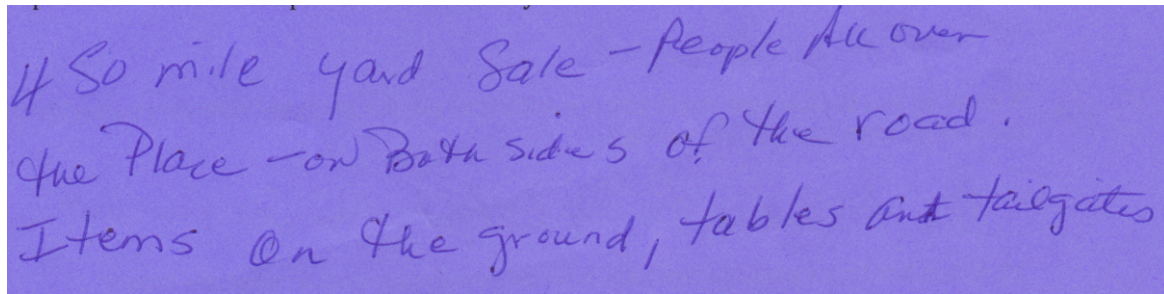 450 mile yard Sale - People All over
the Place - on Both sides of the road.
Items on the ground, tables and tailgates